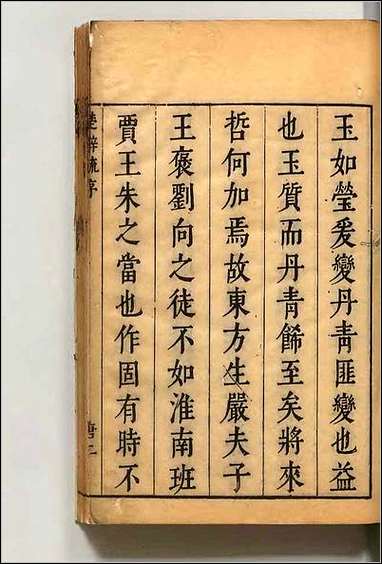 玉如瑩爰變丹青匪變也益
也玉質而丹青餙至矣將來
哲何加焉故東方生嚴夫子
王褒劉向之徒不如淮南班
賈王朱之當也作固有時不
楚辭疏序
唐二